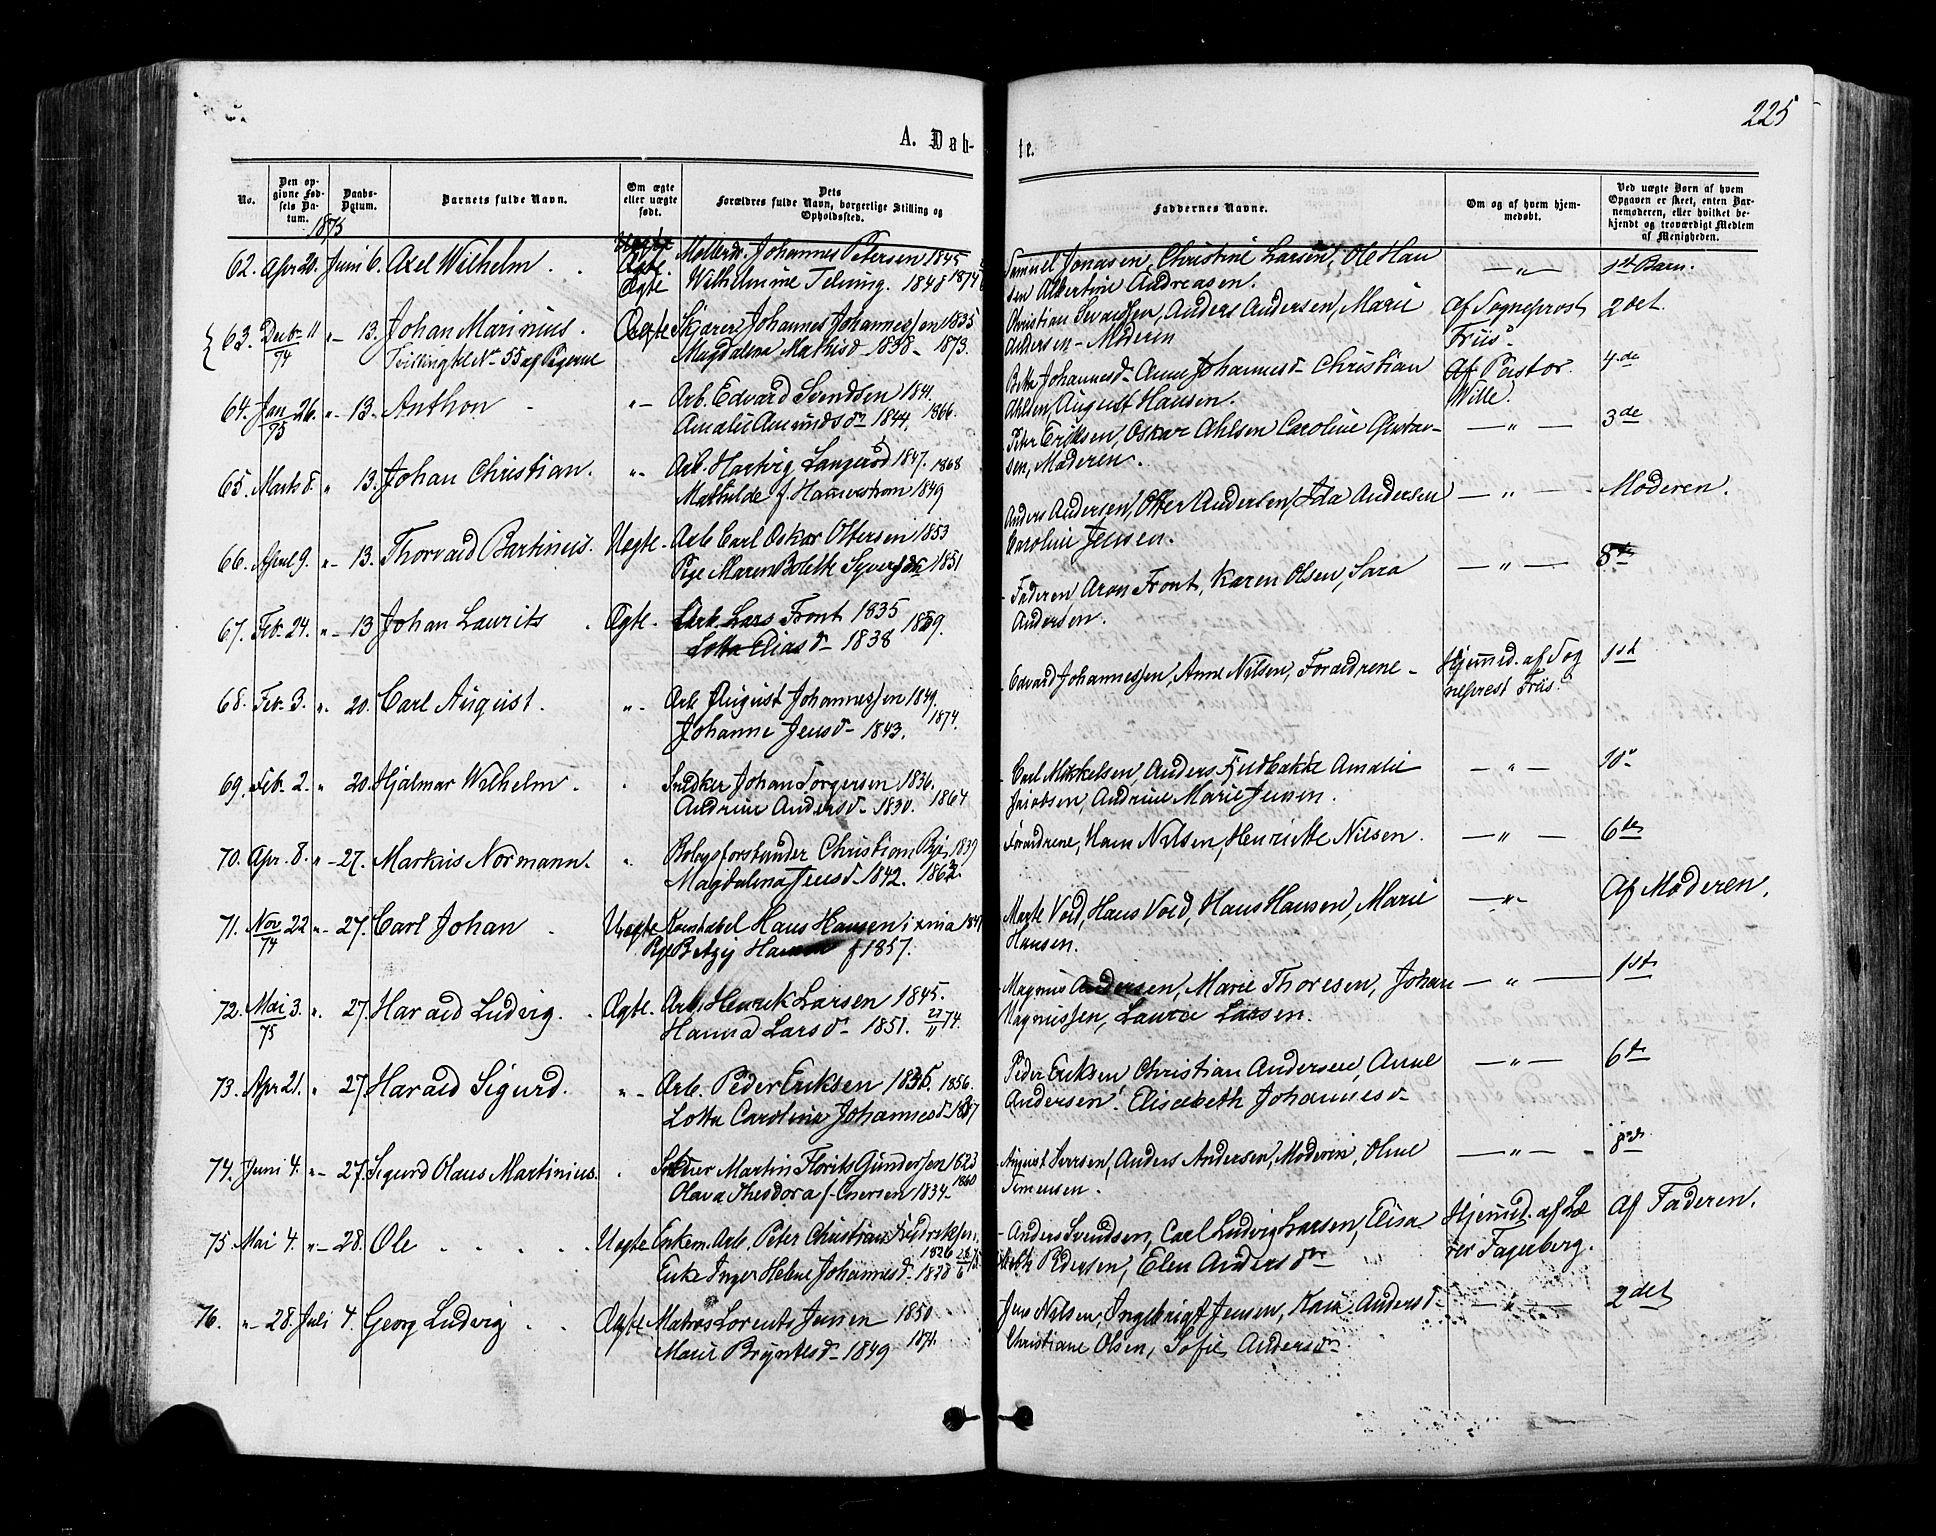 225
A. Døb-
te.
No.
Den op-
givne Fød-
sels Da-
tum.
Daabs-
Datum.
Barnets fulde Navn.
Om ægte
eller uægte
født.
Dets
Forældres fulde Navn, borgerlige Stilling og
Opholdssted.
Faddernes Navne.
Om og af hvem hjem-
medøbt.
Ved uægte Børn af hvem
Opgaven er skeet, enten Bar-
nemoderen, eller hvilket be-
kjendt og troværdigt Medlem
af Menigheden.
1875
62. Apr 20. Juni 6. Axel Wilhelm Ægte Johannes Petersen 1845
Wilhelmine 1848 1874
Samuel Jonasen, Christine Larsen, Ole Han
sen Albertine Andreasen.
—"— 1st Barn.
63. Decbr 11 "- 13. Johan Marinius. Ægte Johannes Johannessen 1835
74 Tvilling til No 55 af Pigerne Magdalena Mathisd - 1838 - 1873.
Christian Anders Andersen, Marie
Andersen - Moderen
af Sogneprost
Friis. 2det
64. Jan 26. "- 13. Anthon - "- Arb. Edvard Svendsen 1841.
75 Amalie Amundsd 1844. 1866.
Johannesd - Anne Johannesd - Christian
Ahlsen, August Hansen.
Af Pastor
Wille. 4de
65. Marts 8. " 13. Johan Christian. "- Arb. Hartvig Langerød 1847. 1868
Mathilde f. 1849
Peter Eriksen, Oskar Ahlsen Caroline Gustav-
sen, Moderen.
— " — 3de
66. April 9. "- 13. Thorvald Bartinius. Uegte. Arb Carl Oskar Ottersen 1853
Pige Maren Bolette 1851
Anders Andersen, Otter Andersen, Ida Andersen
Caroline Jensen.
— " — Moderen.
67. Feb. 24. "- 13 Johan Laurits. Ægte. Arb. Lars Front 1835
Lotta Eliasd - 1838 1859.
Faderen, Aron Front, Karen Olsen, Sara
Andersen.
— " — 8de
68. Feb. 3. ". 20. Carl August. ". Arb August Johannessen 1849.
Johanne Jensd - 1843. 1874.
Edvard Johannessen, Anne Nilsen, Forældrene -
Hjemmd. af Sog
neprest Friis. 1st
69. Feb. 2. " 20. Hjalmar Wilhelm. Snedker Johan Torgersen 1836.
Andrine Andersd - 1830. 1864
Carl Mikkelsen, Anders Amalie
Jacobsen, Andrine Marie Jensen.
— " —
70. Apr. 8. "- 27. Markus Normann. " Christian 1839
Magdalena Jensd 1842.
Forældrene, Hans Nilsen, Henriette Nilsen.
— " — 6te
71. Nov 22 "- 27. Carl Johan Uægte Konstabel Hans Hansen
74 Pige Hansen f 1857.
Vold, Hans Vold, Hans Hansen, Marie
Hansen.
—"- Af Moderen.
72. Mai 3. ". 27. Harald Ludvig. Ægte. Arb. Henrik Larsen 1845.
75 Hanna Larsd - 1851. 27/11 74.
Magnus Andersen, Marie Thoresen, Johan
Magnussen, Laura Larsen.
— " — 1st
73. Apr 21. " 27. Harald Sigurd. "- Arb. Peder Eriksen 1835. 1856.
Lotta Caroline Johannesd -
Peder Eriksen Christian Andersen, Anne
Andersen. Elisabeth Johannesd -
— " — 6te
74. Juni 4. "- 27. Sigurd Olaus Martinius. Martin Gundersen 1823
Olava Theodora f. Iversen 1834- 1860
August Iversen, Anders Andersen, Moderen, Oline
Simensen.
— " — 8de
75 Mai 4. "- 28. Ole Uegte Enkem. Arb. Peter Christian Fredriksen.
1826
Enke Inger Helene Johannesd - 1828
Anders Svendsen, Carl Ludvig Larsen, Elisa
beth Pedersen, Elen Andersdtr
Hjemmd. af Læ
rer Fagerberg. Af Faderen.
76. "- 28. Juli 4. Georg Ludvig Ægte Matros Lorents Jensen 1850
Marie Bryntesd - 1849 1874.
Jens Nilsen, Ingebrigt Jensen, Karen Andersd.
Christiane Olsen, Sofie Andersd -
— " — 2det